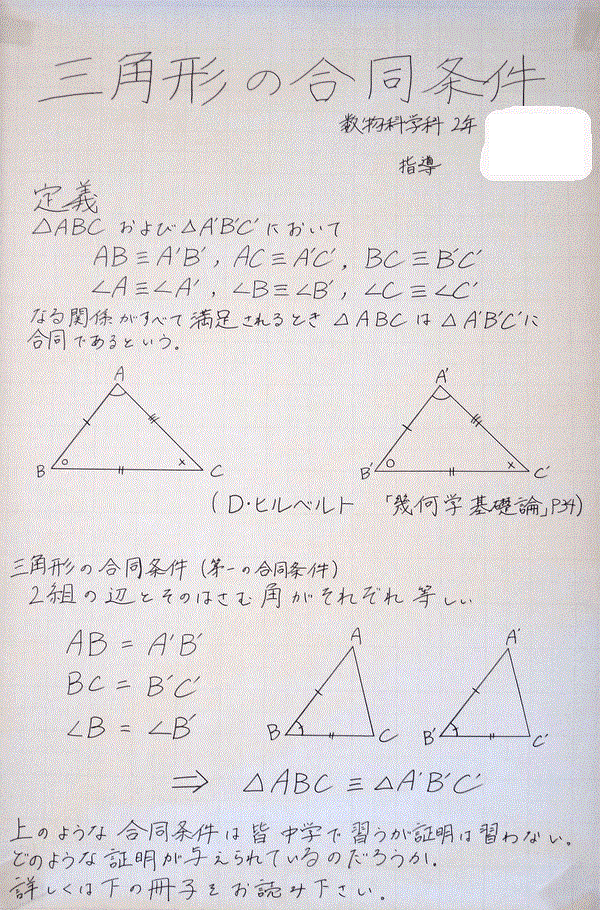 三角形の合同条件
数物科学科 2年
指導
定義
△ABC および △A'B'C' において
AB≡A'B', AC≡A'C', BC≡B'C'
∠A≡∠A', ∠B≡∠B', ∠C≡∠C'
なる関係がすべて満足されるとき △ABC は △A'B'C' に
合同であるという。
A
B
C
A'
B'
C'
(D・ヒルベルト 「幾何学基礎論」P34)
三角形の合同条件 (第一の合同条件)
2組の辺とそのはさむ角がそれぞれ等しい
AB = A'B'
BC = B'C'
∠B = ∠B'
A
B
C
A'
B'
C'
⇒ △ABC ≡ △A'B'C'
上のような合同条件は皆中学で習うが証明は習わない.
どのような証明が与えられているのだろうか.
詳しくは下の冊子をお読み下さい.